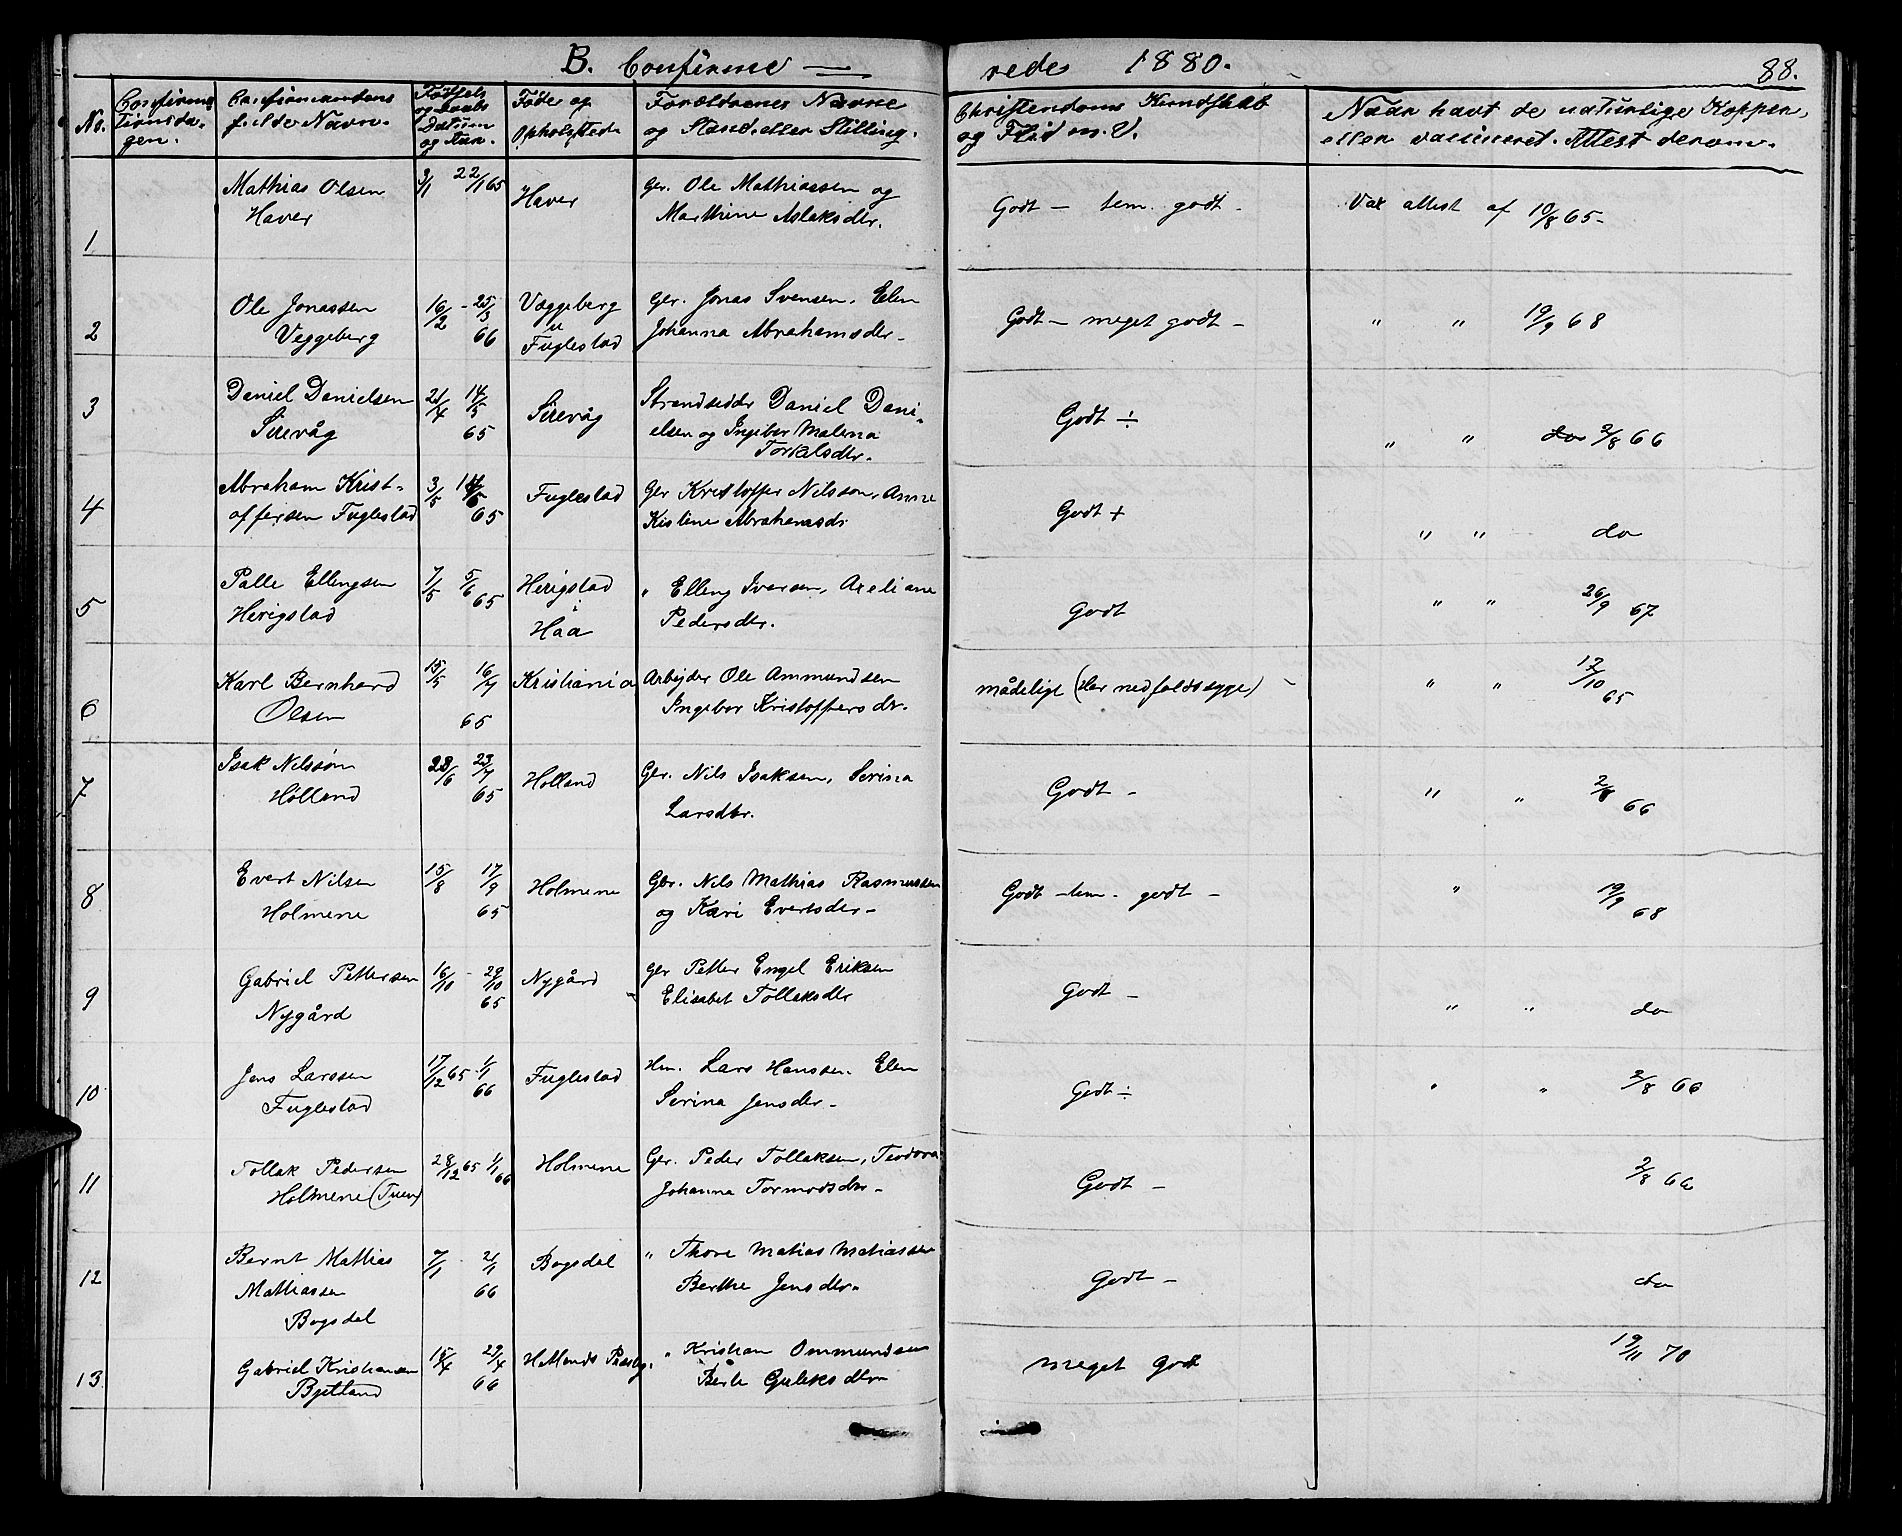 B. Confirme — rede 1880. 88.
No. | Confirmationsdagen. | Confirmandens fulde Navn. | Fødsels og Daabs Datum og Aar. | Føde og Opholdssted | Forældrenes Navne og Stand eller Stilling. | Christendoms Kundskab og Flid m. V. | Naar havt de naturlige Kopper, eller vaccineret. Attest derom.
1 | Mathias Olsen Haver | 3/1 22/1 65 | Haver | Gr. Ole Mathiassen og Marthine Aslaksdtr. | Godt — tem. godt - | Vax attest af 10/8 65-
2 | Ole Jonassen Veggeberg | 16/2 - 25/3 66 | Væggeberg Fuglestad | Gr. Jonas Svensen, Elen Johanna Abrahamsdtr - | Godt — meget godt - | " " 19/9 68
3 | Daniel Danielsen Sirevåg | 21/4 14/5 65 | Sirevåg | Strandsidder Daniel Danielsen og Ingebor Malena Torkelsdtr. | Godt ÷ | " " 2/8 66
4 | Abraham Kristoffersen Fuglestad | 3/5 14/5 65 | Fuglestad | Gr Kristoffer Nilsson, Anne Kistine Abrahamsdr | Godt + | " " do
5 | Palle Ellengsen Herigstad | 7/5 5/6 65 | Herigstad i Haa | " Elleng Ivarsen, Axeliane Pedersdtr. | Godt | " " 26/9 67
6 | Karl Bernhard Olsen | 15/5 16/7 65 | Kristiania | Arbejder Ole Ammundsen Ingebor Kristoffersdtr. | mådeligt (Har nedfaldssyge) | " " 17/10 65
7 | Isak Nilssøn Hølland | 28/6 23/7 65 | Holland | Gr. Nils Isaksen, Serina Larsdtr. | Godt - | " " 2/8 66
8 | Evert Nilsen Holmene | 15/8 17/9 65 | Holmene | Gr. Nils Mathias Rasmussen og Kari Evertsdtr - | Godt - tem. godt - | " 19/9 68
9 | Gabriel Pettersen Nygård | 16/10 - 29/10 65 | Nygård | Gr Petter Engel Eriksen Elisabet Tollaksdtr | Godt - | " " do
10 | Jens Larssen Fuglestad | 17/12 65 1/1 66 | Fuglestad | Hm. Lars Hanssen. Elen Serina Jensdtr - | Godt ÷ | " " 2/8 66
11 | Tollak Pedersen Holmene (Tuen) | 28/12 65 1/1 66 | Holmene | Gr. Peder Tollaksen, Teodora Johanna Tormodsdtr - | Godt - | 2/8 66
12 | Bernt Mathias Mathiassen Bogsdal | 7/1 - 21/1 66 | Bogsdal | " Thore Matias Matiassen Berthe Jensdtr - | Godt - | do
13 | Gabriel Kristiansen Bjetland | 15/4 29/4 66 | Hetlands Præstg. | " Kristian Ommundsen Berte Guleksdtr | meget Godt | 19/11 70